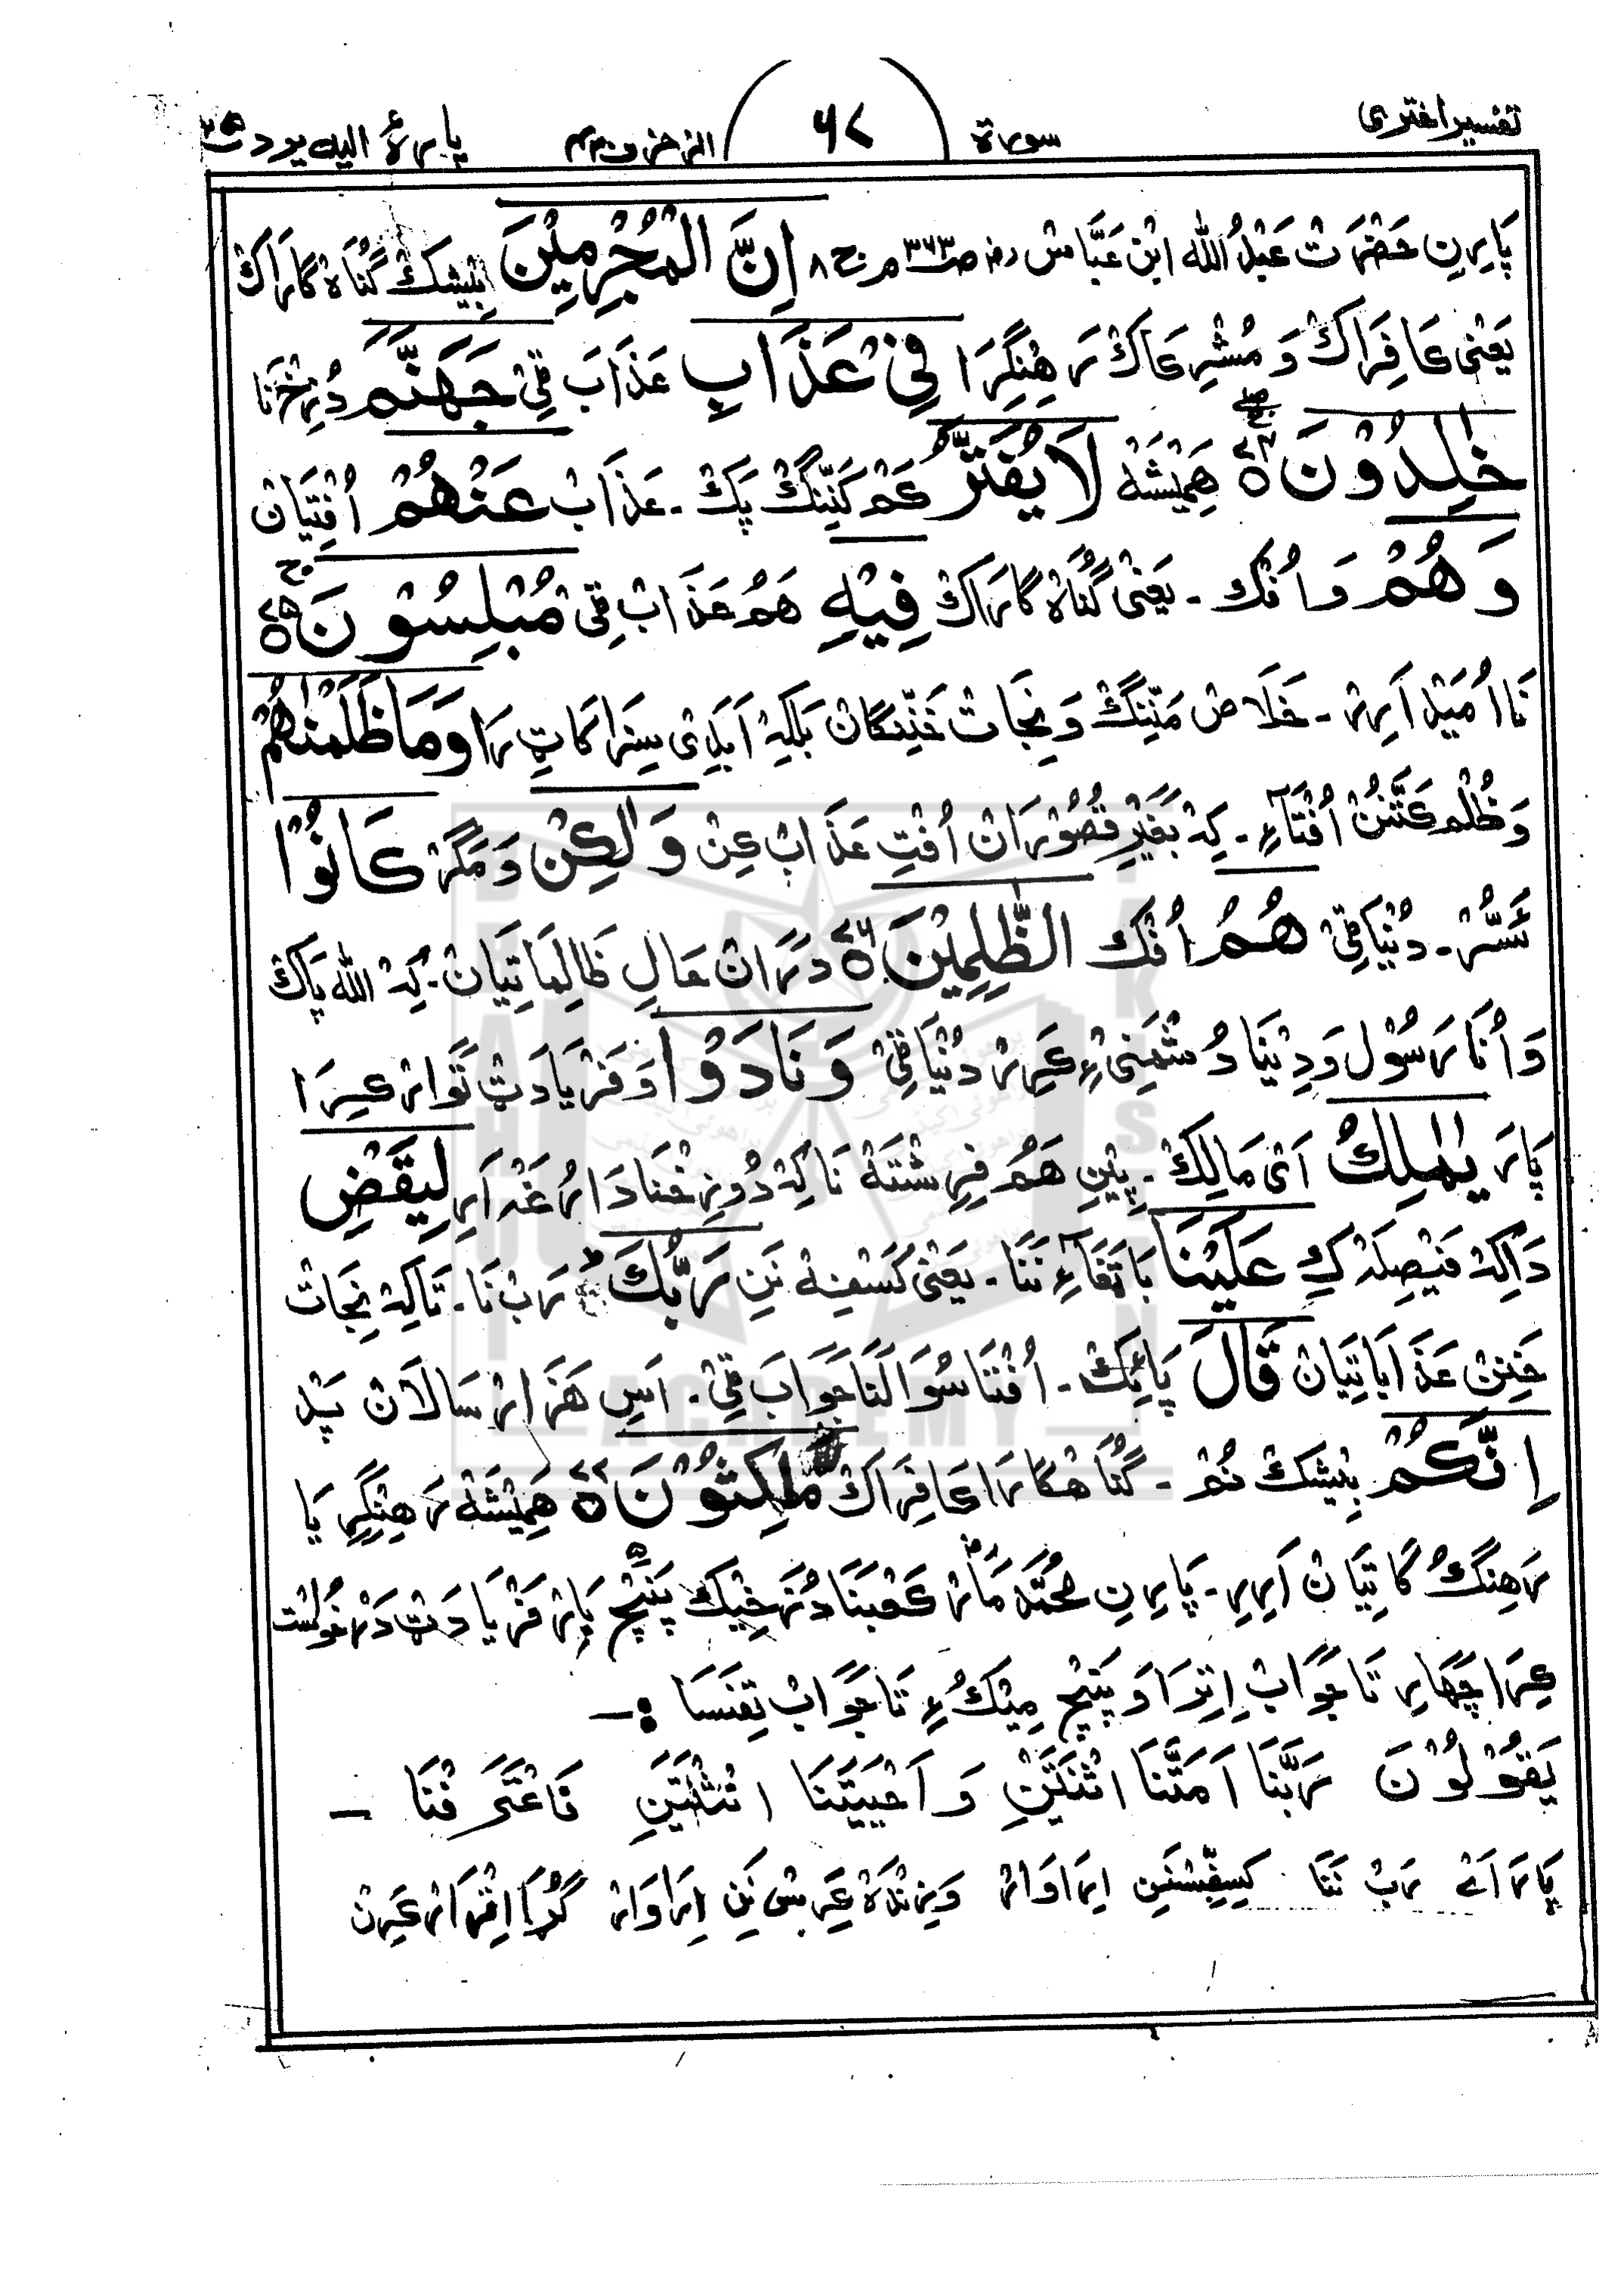 تفسیر اختری سورة ٦٧ الزخرف ٤٣ پارۀ الیه یرد ٢٥
پَارِیرِ حَضْرَتْ عَبْدُ اللّٰه ابْنِ عَبَّاسْ رضہ صـ٣٧٣ م ج ٨ اِنَّ الْمُجْرِمِیْنَ بَیْشَکْ گُنَاہْ گَارَاکْ
یَعْنٖی کَافِرَاکْ وَ مُشْرِکَاکْ رَهِنْگِرَا فِیْ عَذَابِ عَذَابَ ٹِیْ جَهَنَّمَ دُزَخْنَا
خٰلِدُوْنَ ٧٤ هَمِیْشَهْ لَا یُفَتَّرُ کَمْ کَنِّنْگْ پَکْ ۔ عَذَابْ عَنْهُمْ اُفْتِیَانْ
وَ هُمْ وَ اُفْک ۔ یَعْنٖی گُنَاہْ گَارَاکْ فِیْهِ هَمُ عَذَابْ ٹِیْ مُبْلِسُوْنَ ٧٥
نَا اُمَیْدْ اَرِیرْ ۔ خَلَاصْ مَنِّنْگْ وَ نِجَاتْ خَنِّنْگَانْ بَلْکِہْ اَبَدِیْ سِزَا کَاتِ رَا وَمَا ظَلَمْنٰهُمْ
وَ ظُلْم کَتَّنُنْ اُفْتَآءِ ۔ کِہْ بَغَیْرِ قُصُوْرَانْ اُفْتِ عَذَابْ کِنْ وَلٰکِنْ وَ مَگَرْ کَانُوْا
مَسُّرْ ۔ دُنْیَا ٹِیْ هُمُ اُفْک الظّٰلِمِیْنَ ٧٦ دَرَانْ حَالِ ظَالِمَاتِیَانْ ۔ کِہْ اللّٰه پَاکْ
وَ اُنَا رَسُوْل وَ دِیْنَا دُشْمَنِیْءِ کَرِرْ دُنْیَا ٹِیْ وَنَادَوْا وَ فَرْیَادَتْ تَوَارْ کِرَا
پَارَ یٰمٰلِکُ اَیْ مَالِکْ ۔ پِنِ هَمُ فِرِشْتَهْ نَا کِہْ دُوزِخْنَا دَارُغَہ اَرِ لِیَقْضِ
دَا کِہْ فَیْصِلَہ کِ عَلَیْنَا بَاتَغَاءِ نَنَا ۔ یَعْنٖی کَسْفِہْ نَنِ رَبُّکَ رَبْ نَا ۔ تَاکِہْ نِجَاتْ
خَنِنْ عَذَابَاتِیَانْ قَالَ پَائِکْ ۔ اُفْتَا سُوَالَنَا جَوَابَ ٹِیْ ۔ اَسِ هَزَارْ سَالَانْ پَدْ
اِنَّکُمْ بَیْشَکْ نُمْ ۔ گُنَاهْگَارَا کَافِرَاکْ مٰکِثُوْنَ ٧٧ هَمِیْشَهْ رَهِنْگِرِ یَا
رَهِنْگُ کَاتِیَانْ اَرِیرِ ۔ پَارِیرِ مُحَمَّد مَارْ کَعْبَنَا دُزَخِیْکْ پَنْچْ پَارْ فَرْیَادَتْ دَرْخُوَاسْت
کِرَا چَهَارِ تَا جَوَابْ اِتِرَا وَ پَنْچْ مِیْکُءِ تَا جَوَابْ تِفَسَا :ـ
یَقُوْلُوْنَ رَبَّنَا اَمَتَّنَا اثْنَتَیْنِ وَ اَحْیَیْتَنَا اثْنَتَیْنِ فَاعْتَرَفْنَا ـ
پَارَ اَے رَبْ نَنَا کَسِفِّسْنَنِ اِرَا وَارْ وَ زِنْدَہْ کَرِسْ نَنِ اِرَا وَارْ گُڑَا اِقْرَارْ کَرِنْ